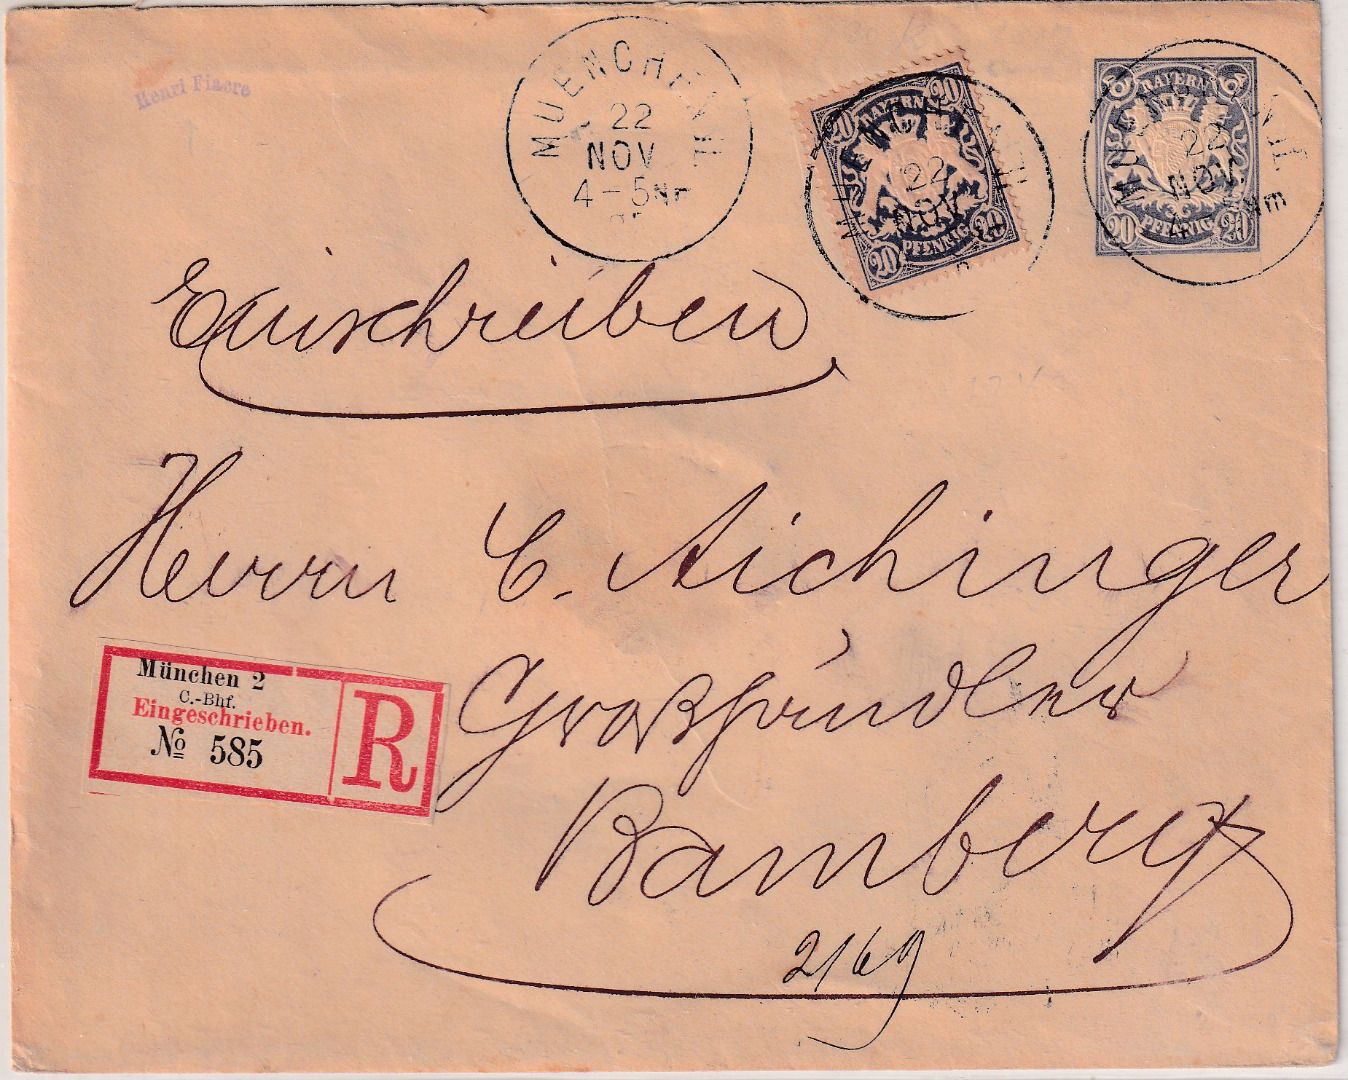 Henri Fiacre
MUENCHEN
22
NOV
4-5 NM
BAYERN
20 20
PFENNIG
20 20
22
NOV
BAYERN
PFENNIG
20 20
22
NOV
Nm
Einschreiben
Herrn C. Aichinger
Großhändler
Bamberg
München 2
C.-Bhf.
Eingeschrieben.
No 585
R
2169